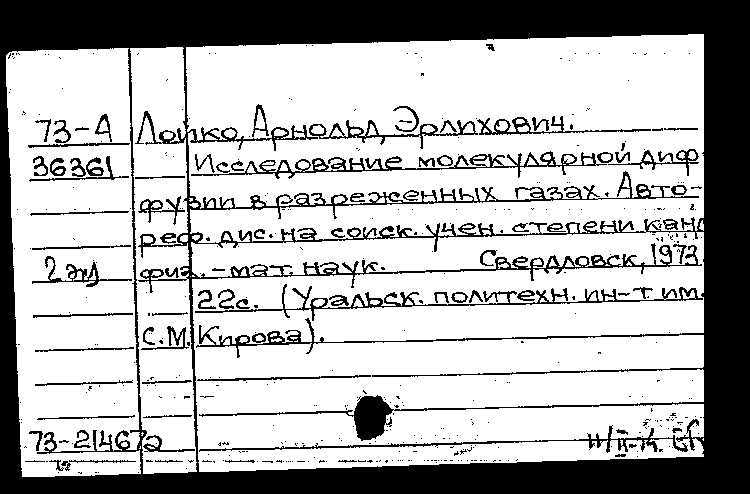 73-А Лойко, Арнольд Эрлихович.
36361 Исследование молекулярной диф
фузии в разреженных газах. Авто-
реф. дис. на соиск. учен. степени канд
2 экз физ.-мат. наук. Свердловск, 1973.
22с. (Уральск. политехн. ин-т им.
С.М. Кирова).
73-21467а